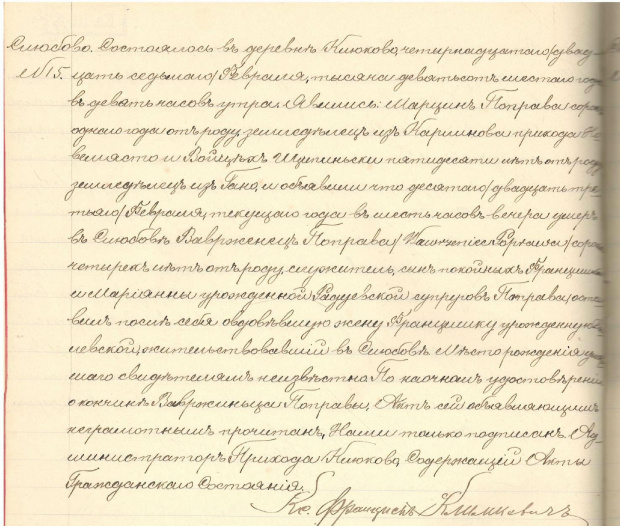 Слюбово. Состоялось въ деревнѣ Клюково, четырнадцатаго /двад-
№15. цать седьмаго/ Февраля, тысяча девятьсотъ шестаго года
въ девять часовъ утра. Явились: Марцинъ Поправа сорокъ
одного года отъ роду земледѣлецъ изъ Карнинова прихода
и Войцѣхъ пятидесяти лѣтъ отъ роду
земледѣлецъ изъ и объявили что десятаго /двадцать тре-
тьяго/ Февраля, текущаго года въ шесть часовъ вечера умеръ
въ Слюбовѣ Вавржинецъ Поправа /Wawrzeniec Poprawa/ сорокъ
четырехъ лѣтъ отъ роду служитель, сынъ покойныхъ Францишка
и Маріянны урожденной супруговъ Поправа, оста-
вивъ послѣ себя овдовѣвшую жену Францишку урожденную
левской, жительствовавшій въ Слюбовѣ. Мѣсто рожденія умер-
шаго свидѣтелямъ неизвѣстно. По наочномъ удостовѣреніи
о кончинѣ Вавржиньца Поправы, Актъ сей объявляющимъ
неграмотнымъ прочитанъ, Нами только подписанъ Ад-
министраторъ Прихода Клюково, Содержащій Акты
Гражданскаго Состоянія.
Кс. Францискъ